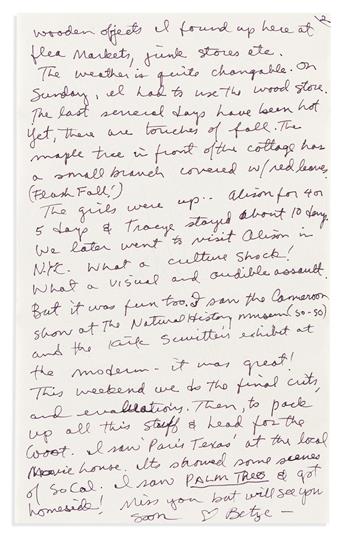 2
wooden objects I found up here at
flea markets, junk stores etc.
The weather is quite changable. On
Sunday, I had to use the wood stove.
The last several days have been hot
yet, there are touches of fall. The
maple tree in front of the cottage has
a small branch covered w/ red leaves
(Flash Fall!)
The girls were up.. Alison for 4 or
5 days & Tracye stayed about 10 days.
We later went to visit Alison in
NYC. What a culture shock!
What a visual and audible assault.
But it was fun too. I saw the Cameroon
show at the Natural History museum (so-so)
and the Kurt Switters exhibit at
the modern - it was great!
This weekend we do the final crits,
and evaluations. Then, to pack
up all this stuff & head for the
coast. I saw 'Paris Texas' at the local
Movie house. Its showed some scenes
of So Cal. I saw PALM TREES & got
homeside! Miss you but will see you
soon ♡ Betze —